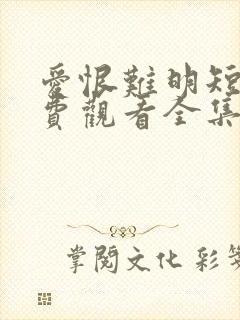 愛恨難明短
費觀看全集
掌閱文化 彩